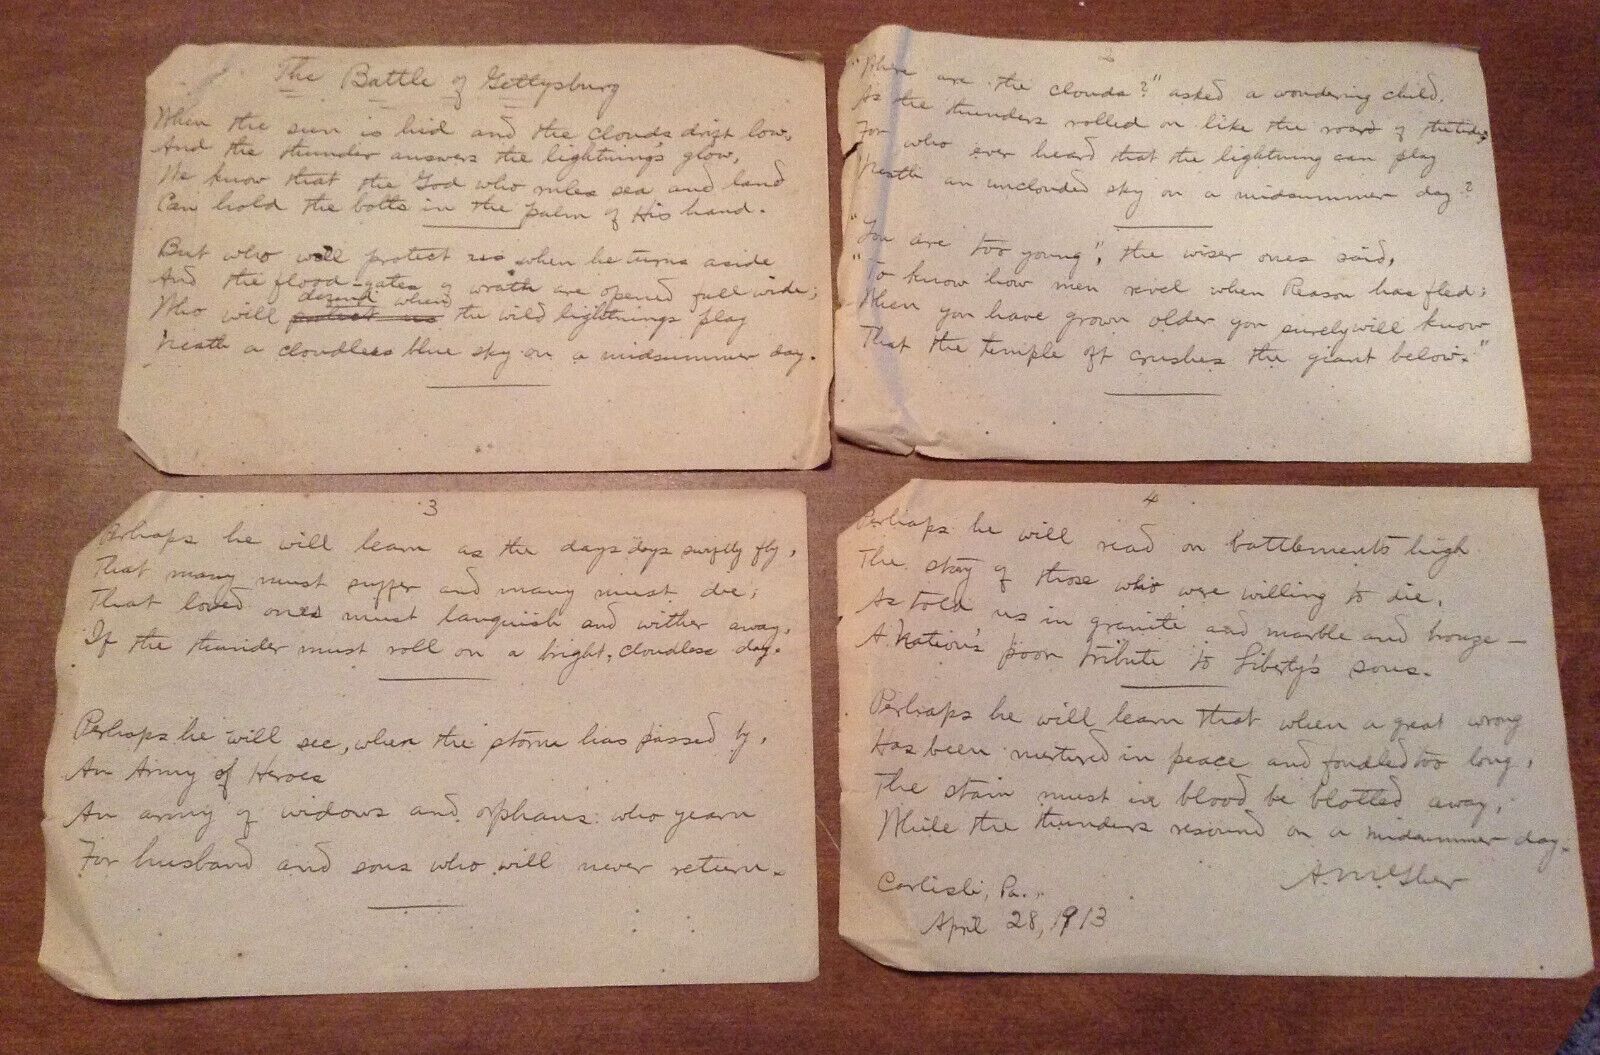 The Battle of Gettysburg
When the sun is hid and the clouds drift low,
And the thunder answers the lightning's glow,
We know that the God who rules sea and land
Can hold the bolts in the palm of His hand.
But who will protect us when he turns aside
And the flood-gates of wrath are opened full wide;
Who will protect us defend when the wild lightnings play
'Neath a cloudless blue sky on a midsummer day.
2
"Where are the clouds?" asked a wondering child.
As the thunders rolled on like the roar of the tides,
For who ever heard that the lightning can play
'Neath an unclouded sky on a midsummer day?
"You are too young", the wiser ones said,
"To know how men revel when Reason has fled;
When you have grown older you surely will know
That the temple oft crushes the giant below."
3
Perhaps he will learn as the days days swiftly fly,
That many must suffer and many must die;
That loved ones must languish and wither away,
If the thunder must roll on a bright, cloudless day.
Perhaps he will see, when the storm has passed by,
An Army of Heroes
An army of widows and orphans who yearn
For husband and sons who will never return.
4
Perhaps he will read on battlements high
The story of those who were willing to die,
As told us in granite and marble and bronze —
A Nation's poor tribute to Liberty's sons.
Perhaps he will learn that when a great wrong
Has been nurtured in peace and fondled too long,
The stain must in blood be blotted away,
While the thunders resound on a midsummer day.
Carlisle, Pa.,
April 28, 1913